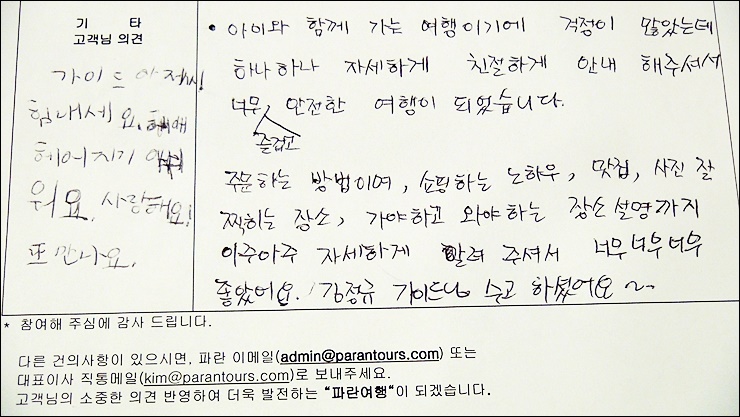 기 타
고객님 의견
가이드 아저씨!
힘내세요.
헤어지기
워요. 사랑해요!
또 만나요.
• 아이와 함께 가는 여행이기에 걱정이 많았는데
하나하나 자세하게 친절하게 안내 해주셔서
너무, 안전한 여행이 되었습니다.
즐겁고
주문하는 방법이며, 쇼핑하는 노하우, 맛집, 사진 잘
찍히는 장소, 가야하고 와야하는 장소설명까지
아주아주 자세하게 알려 주셔서 너무너무너무
좋았어요. 김정규 가이드님 수고 하셨어요~~
* 참여해 주심에 감사 드립니다.
다른 건의사항이 있으시면, 파란 이메일(admin@parantours.com) 또는
대표이사 직통메일(kim@parantours.com)로 보내주세요.
고객님의 소중한 의견 반영하여 더욱 발전하는 "파란여행"이 되겠습니다.